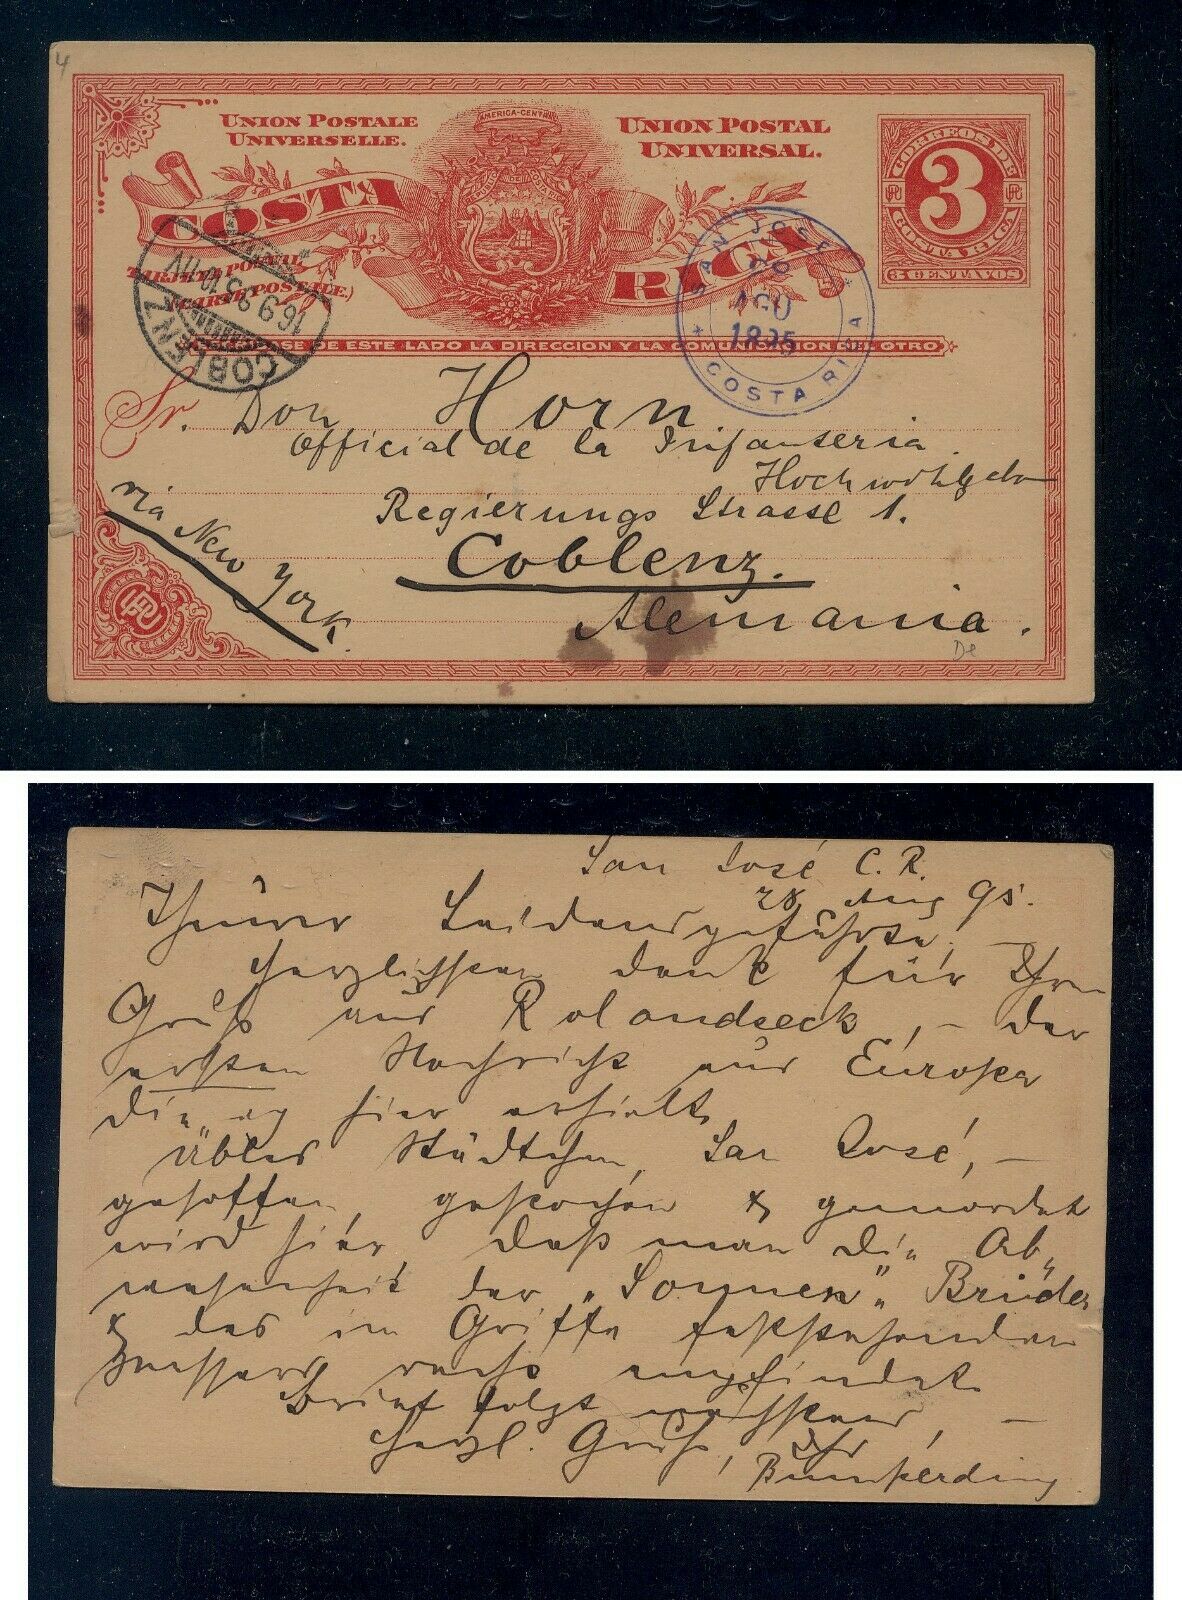 4
UNION POSTALE
UNIVERSELLE.
AMERICA-CENTRAL
UNION POSTAL
UNIVERSAL.
COSTA RICA
TARJETA POSTAL
(CARTE POSTALE.)
CORREOS DE
3
COSTA RICA
3 CENTAVOS
SAN JOSE
AGO
1895
COSTA RICA
COBLENZ
16 9 95
DE ESTE LADO LA DIRECCION Y LA COMUNICACION OTRO
Sr. Don Horn
Official de la Infanteria
Hochwohlgeb
Regierungs Strasse 1.
Coblenz.
Alemania.
via New York.
De
San José C.R.
28 Aug 95.
Theurer Leidensgefährte! —
Herzlichsten Dank für Ihren
Gruß aus Rolandseck, – der
ersten Nachricht aus Europa
die ich hier erhielt.
Übles Städtchen, San José, –
gesoffen, gestochen & gemordet
wird hier, daß man die Ab-
wesenheit der „Sonnen" Brüder
& das im Griffe feststehenden
Messers recht empfindet.
Brief folgt nächstens, –
Herzl. Gruß, Ihr